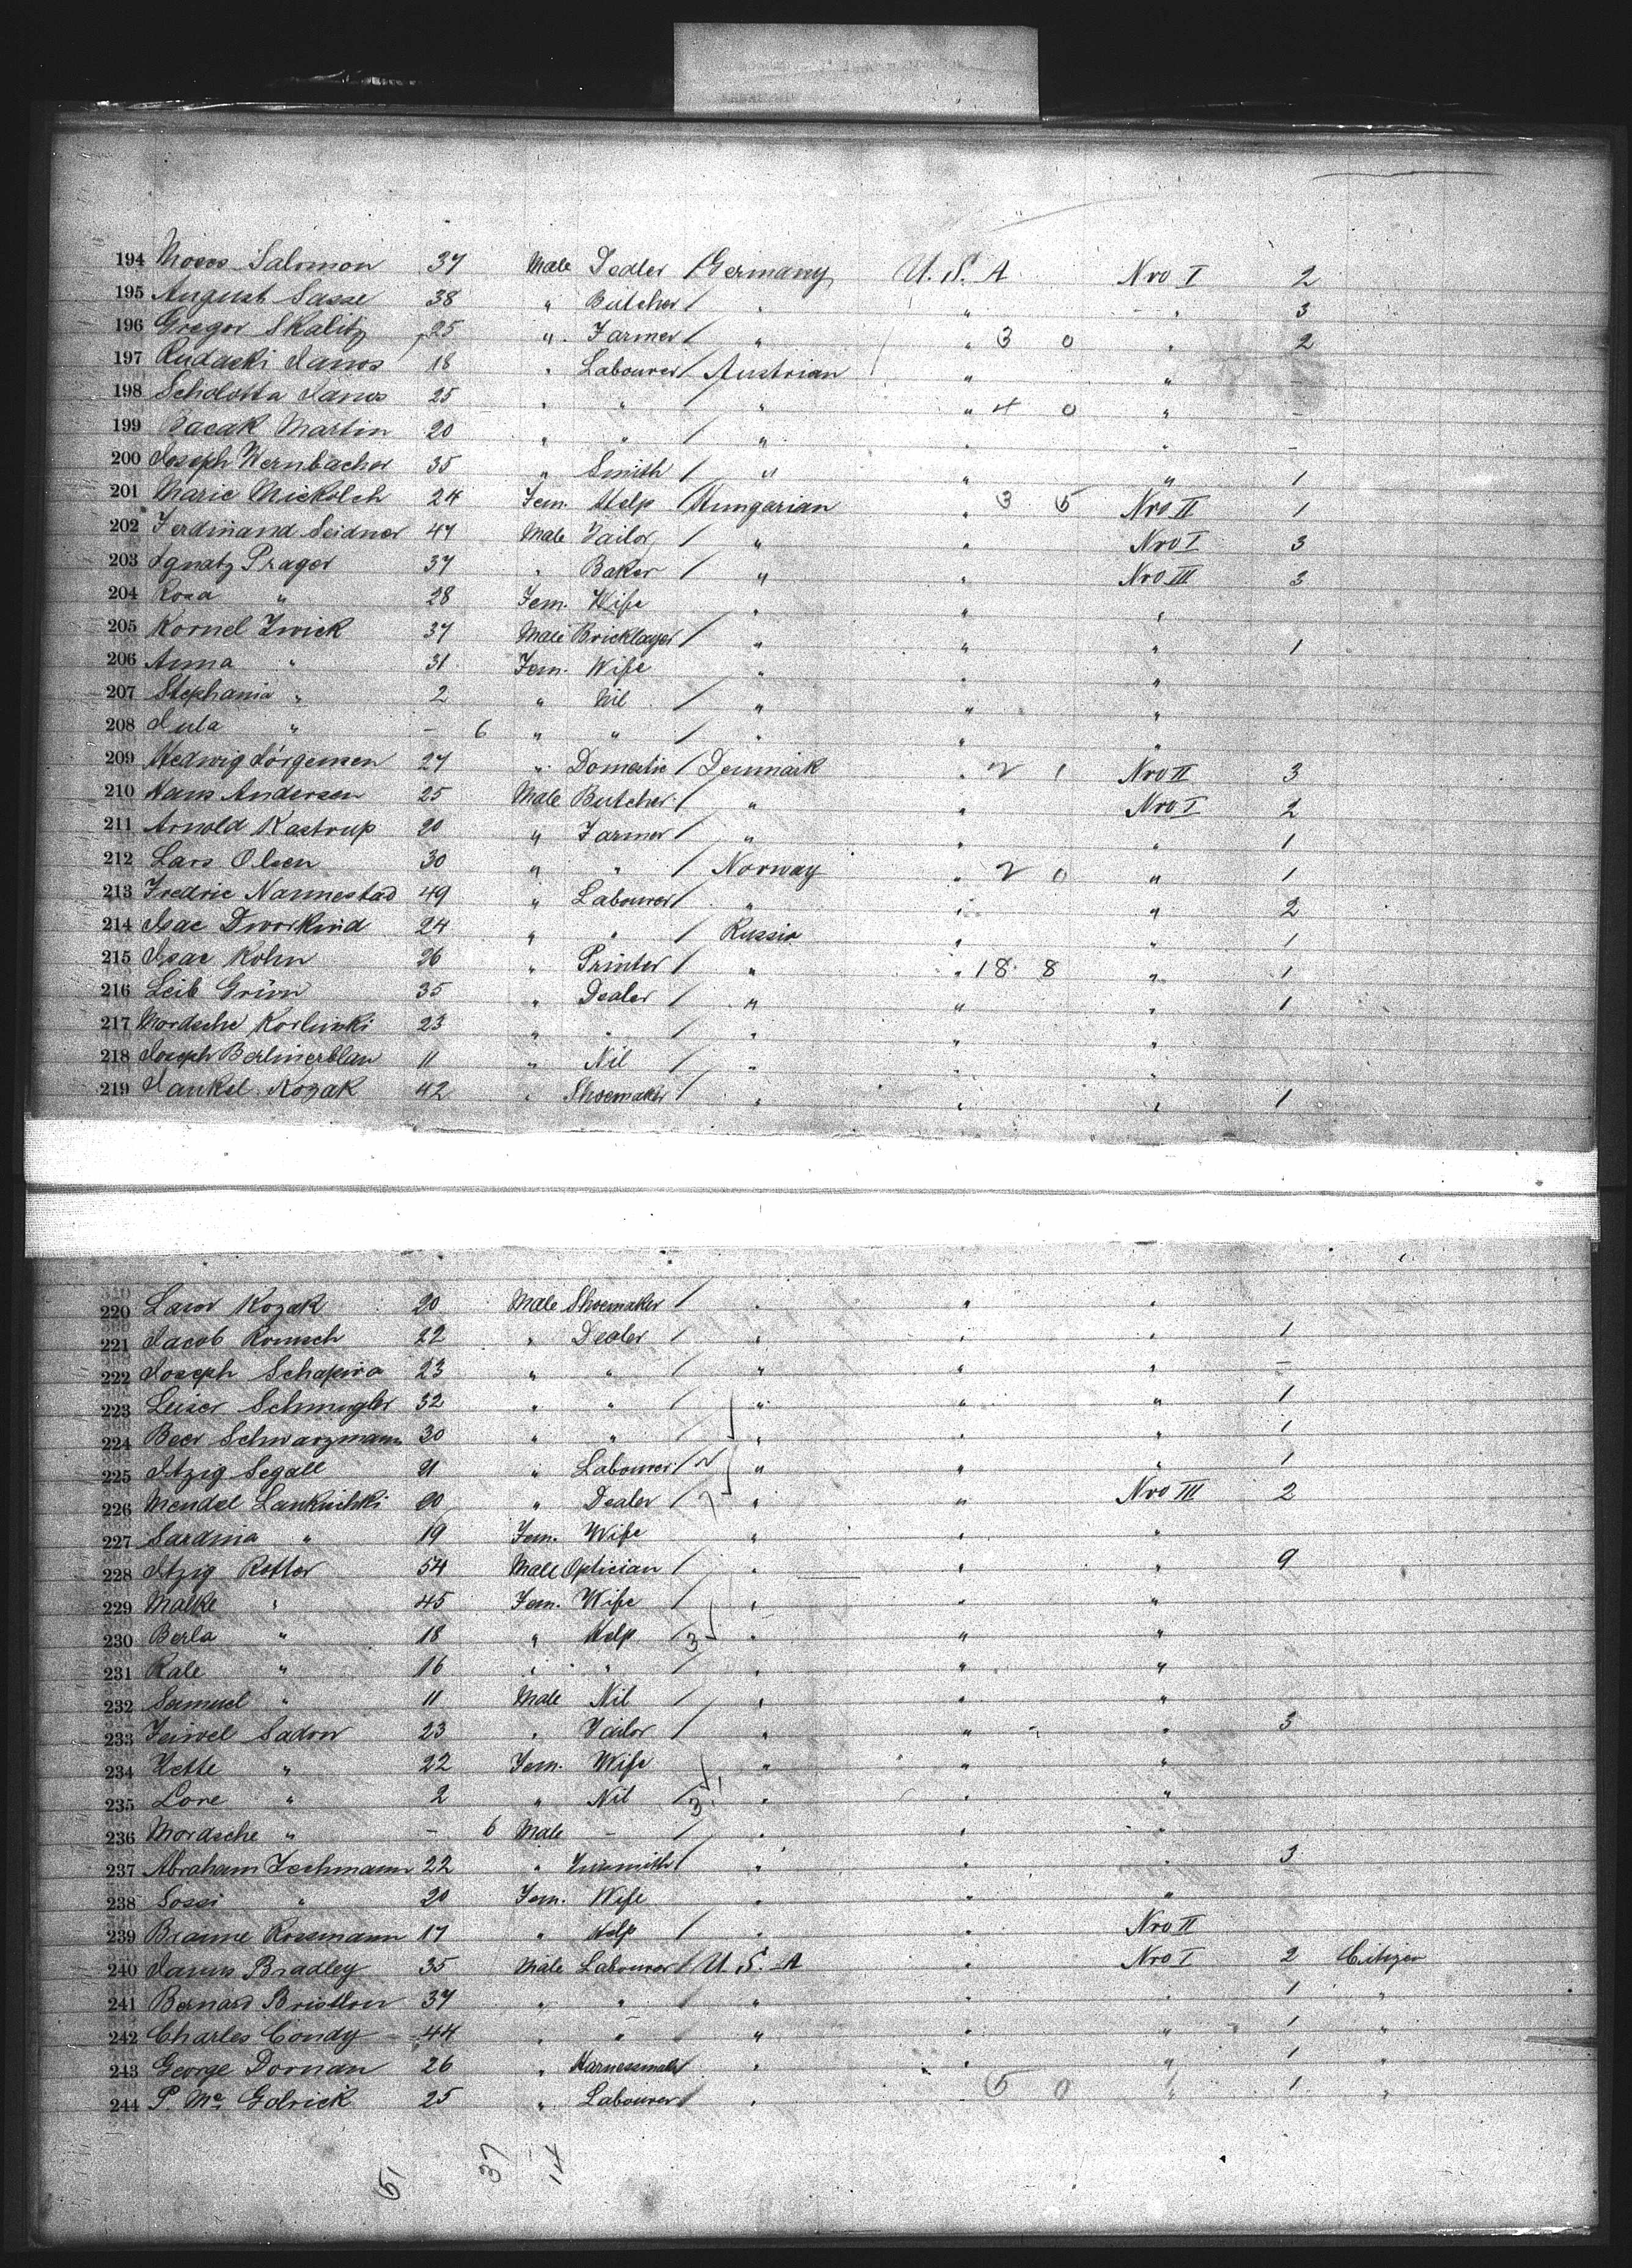 194 Moses Salomon 37 Male Pedler / Germany U. S. A Nro I 2
195 August Sasse 38 " Butcher / " " " 3
196 Gregor Skalitz 25 " Farmer / " " 3 0 " 2
197 Rudaski Janos 18 " Labourer / Austrian " " -
198 Scholotta Janos 25 " " / " " 4 0 " -
199 Bacak Martin 20 " " / " " " -
200 Joseph Wernbacher 35 " Smith / " " " 1
201 Marie Mickolch 24 Fem. Help / Hungarian " 3 5 Nro II 1
202 Ferdinand Seidner 47 Male Tailor / " " Nro I 3
203 Ignatz Prager 37 " Baker / " " Nro III 3
204 Rosa " 28 Fem. Wife " " "
205 Kornel Zwick 37 Male Bricklayer / " " " 1
206 Anna " 31 Fem. Wife " " "
207 Stephania " 2 " Nil / " " "
208 Jula " - 6 " " / " " "
209 Hedwig Jörgensen 27 " Domestic / Denmark " 2 1 Nro II 3
210 Hans Andersen 25 Male Butcher / " " Nro I 2
211 Arnold Kastrup 20 " Farmer / " " " 1
212 Lars Olsen 30 " " / Norway " 2 0 " 1
213 Fredric Nannestad 49 " Labourer / " " " 2
214 Isac Dworkind 24 " " / Russia " " 1
215 Isac Kohn 26 " Printer / " " 18 8 " 1
216 Leib Grün 35 " Dealer / " " " 1
217 Mordsche Korlinski 23 " " / " " "
218 Joseph Berlinerblau 11 " Nil / " " "
219 Jankel Kozak 42 " Shoemaker / " " " 1
220 Kozak 20 Male Shoemaker / " " "
221 Jacob 22 " Dealer / " " " 1
222 Joseph Schapira 23 " " / " " " -
223 Leiser Schmugler 32 " " / " " " 1
224 Beer Schwarzmann 30 " " / " " " 1
225 Itzig Segall 21 " Labourer / 2 " " " 1
226 Mendel 20 " Dealer / 7 " " Nro III 2
227 " 19 Fem. Wife " " "
228 Itzig Rotter 54 Male Optician / " " " 9
229 Malke " 45 Fem. Wife / " " "
230 Berla " 18 " Help / 3 " " "
231 Rale " 16 " " / " " "
232 Samuel " 11 Male Nil / " " "
233 Feiwel Sadow 23 " Tailor / " " " 3
234 Hette " 22 Fem. Wife " " "
235 Lore " 2 " Nil / 3 " " "
236 Mordsche " - 6 Male - / " " "
237 Abraham 22 " / " " " 3
238 Sossi " 20 Fem. Wife " " "
239 Branne Rossmann 17 " Help / " " Nro II
240 James Bradley 35 Male Labourer / U. S. A " Nro I 2 Citizen
241 Bernard 37 " " / " " " 1 "
242 Charles Condy 44 " " " " " 1 "
243 George Dornan 26 " Harnessmaker " " " 1 "
244 P. Mc Golrick 25 " Labourer / " 5 0 " 1 "
51 37 14